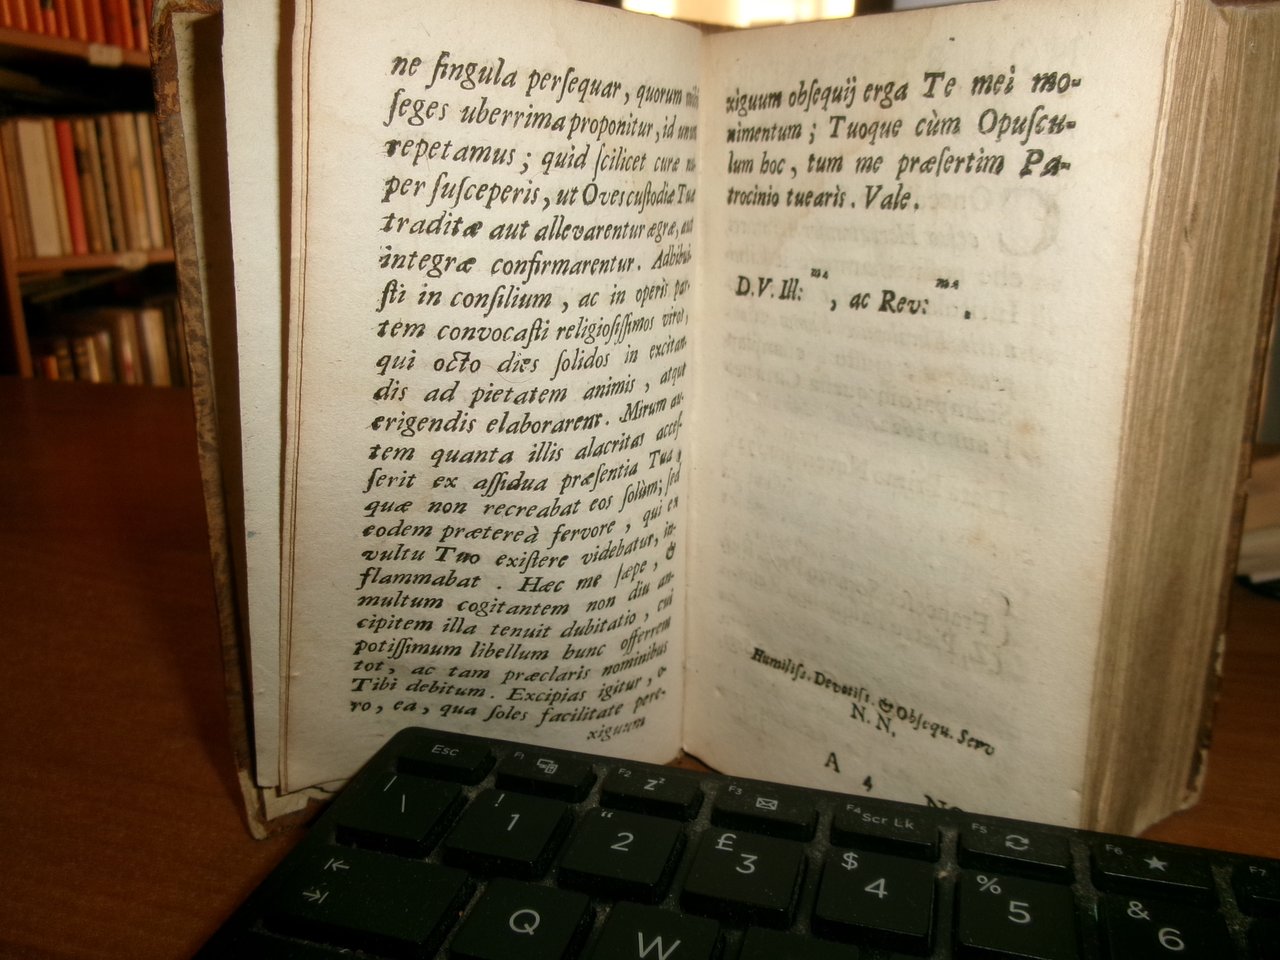 ne ſingula perſequar, quorum mihi
ſeges uberrima proponitur, id unum
repetamus; quid ſcilicet curæ nu-
per ſuſceperis, ut Oves cuſtodiæ Tuæ
traditæ aut allevarentur ægræ, aut
integræ confirmarentur. Adhibui-
ſti in conſilium, ac in operis par-
tem convocaſti religioſiſſimos viros,
qui octo dies ſolidos in excitan-
dis ad pietatem animis, atque
erigendis elaborarent. Mirum au-
tem quanta illis alacritas acceſ-
ſerit ex aſſidua præſentia Tua,
quæ non recreabat eos ſolùm; ſed
eodem prætereà fervore, qui ex
vultu Tuo exiſtere videbatur, in-
flammabat. Hæc me ſæpe, &
multum cogitantem non diu an-
cipitem illa tenuit dubitatio, cui
potiſſimum libellum hunc offerrem
tot, ac tam præclaris nominibus
Tibi debitum. Excipias igitur, o-
ro, ea, qua ſoles facilitate pere-
xiguum
xiguum obſequij erga Te mei mo-
nimentum; Tuoque cùm Opuſcu-
lum hoc, tum me præſertim Pa-
trocinio tuearis. Vale.
D.V. Ill:ma, ac Rev:ma.
Humiliſs. Devotiſs. & Obſequ. Serv
N. N.
A 4
Esc F1 F2 zz F3 F4 Scr Lk F5 F6 F7
| \ ! 1 " 2 £ 3 $ 4 % 5 & 6
Q W